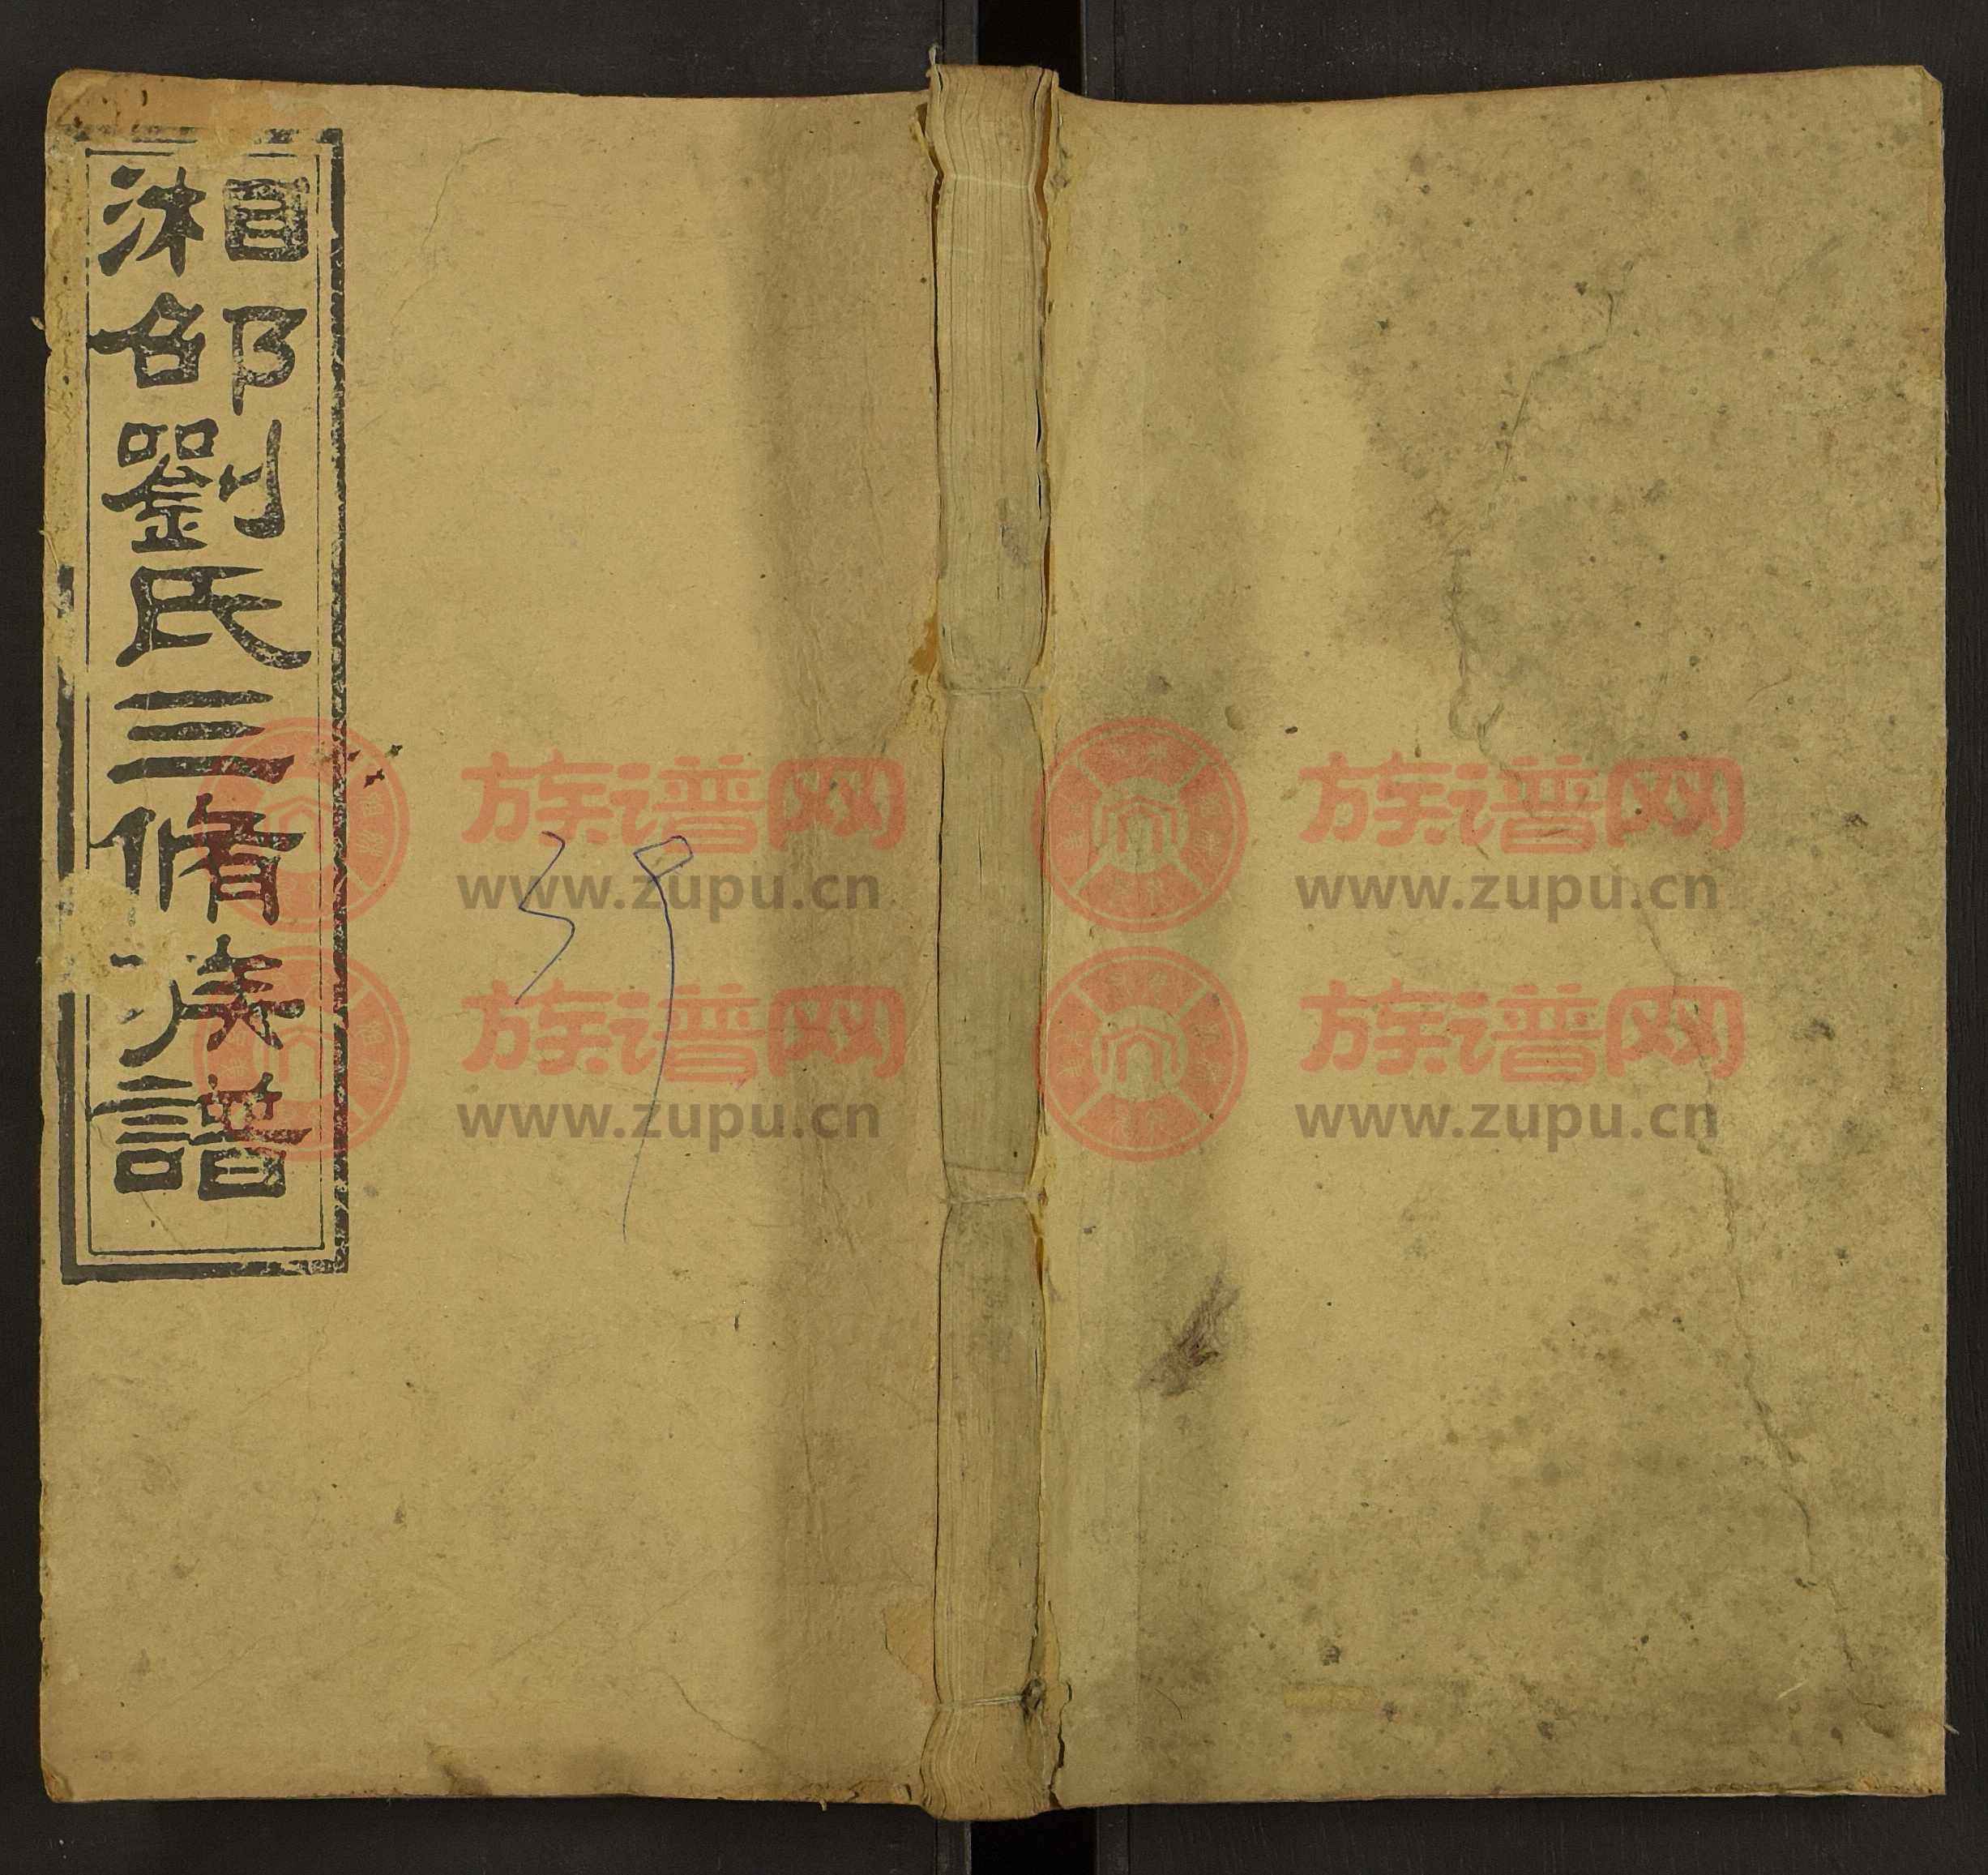 湘邵劉氏三脩族譜
39
族谱网
www.zupu.cn
族谱网
www.zupu.cn
族谱网
www.zupu.cn
族谱网
www.zupu.cn